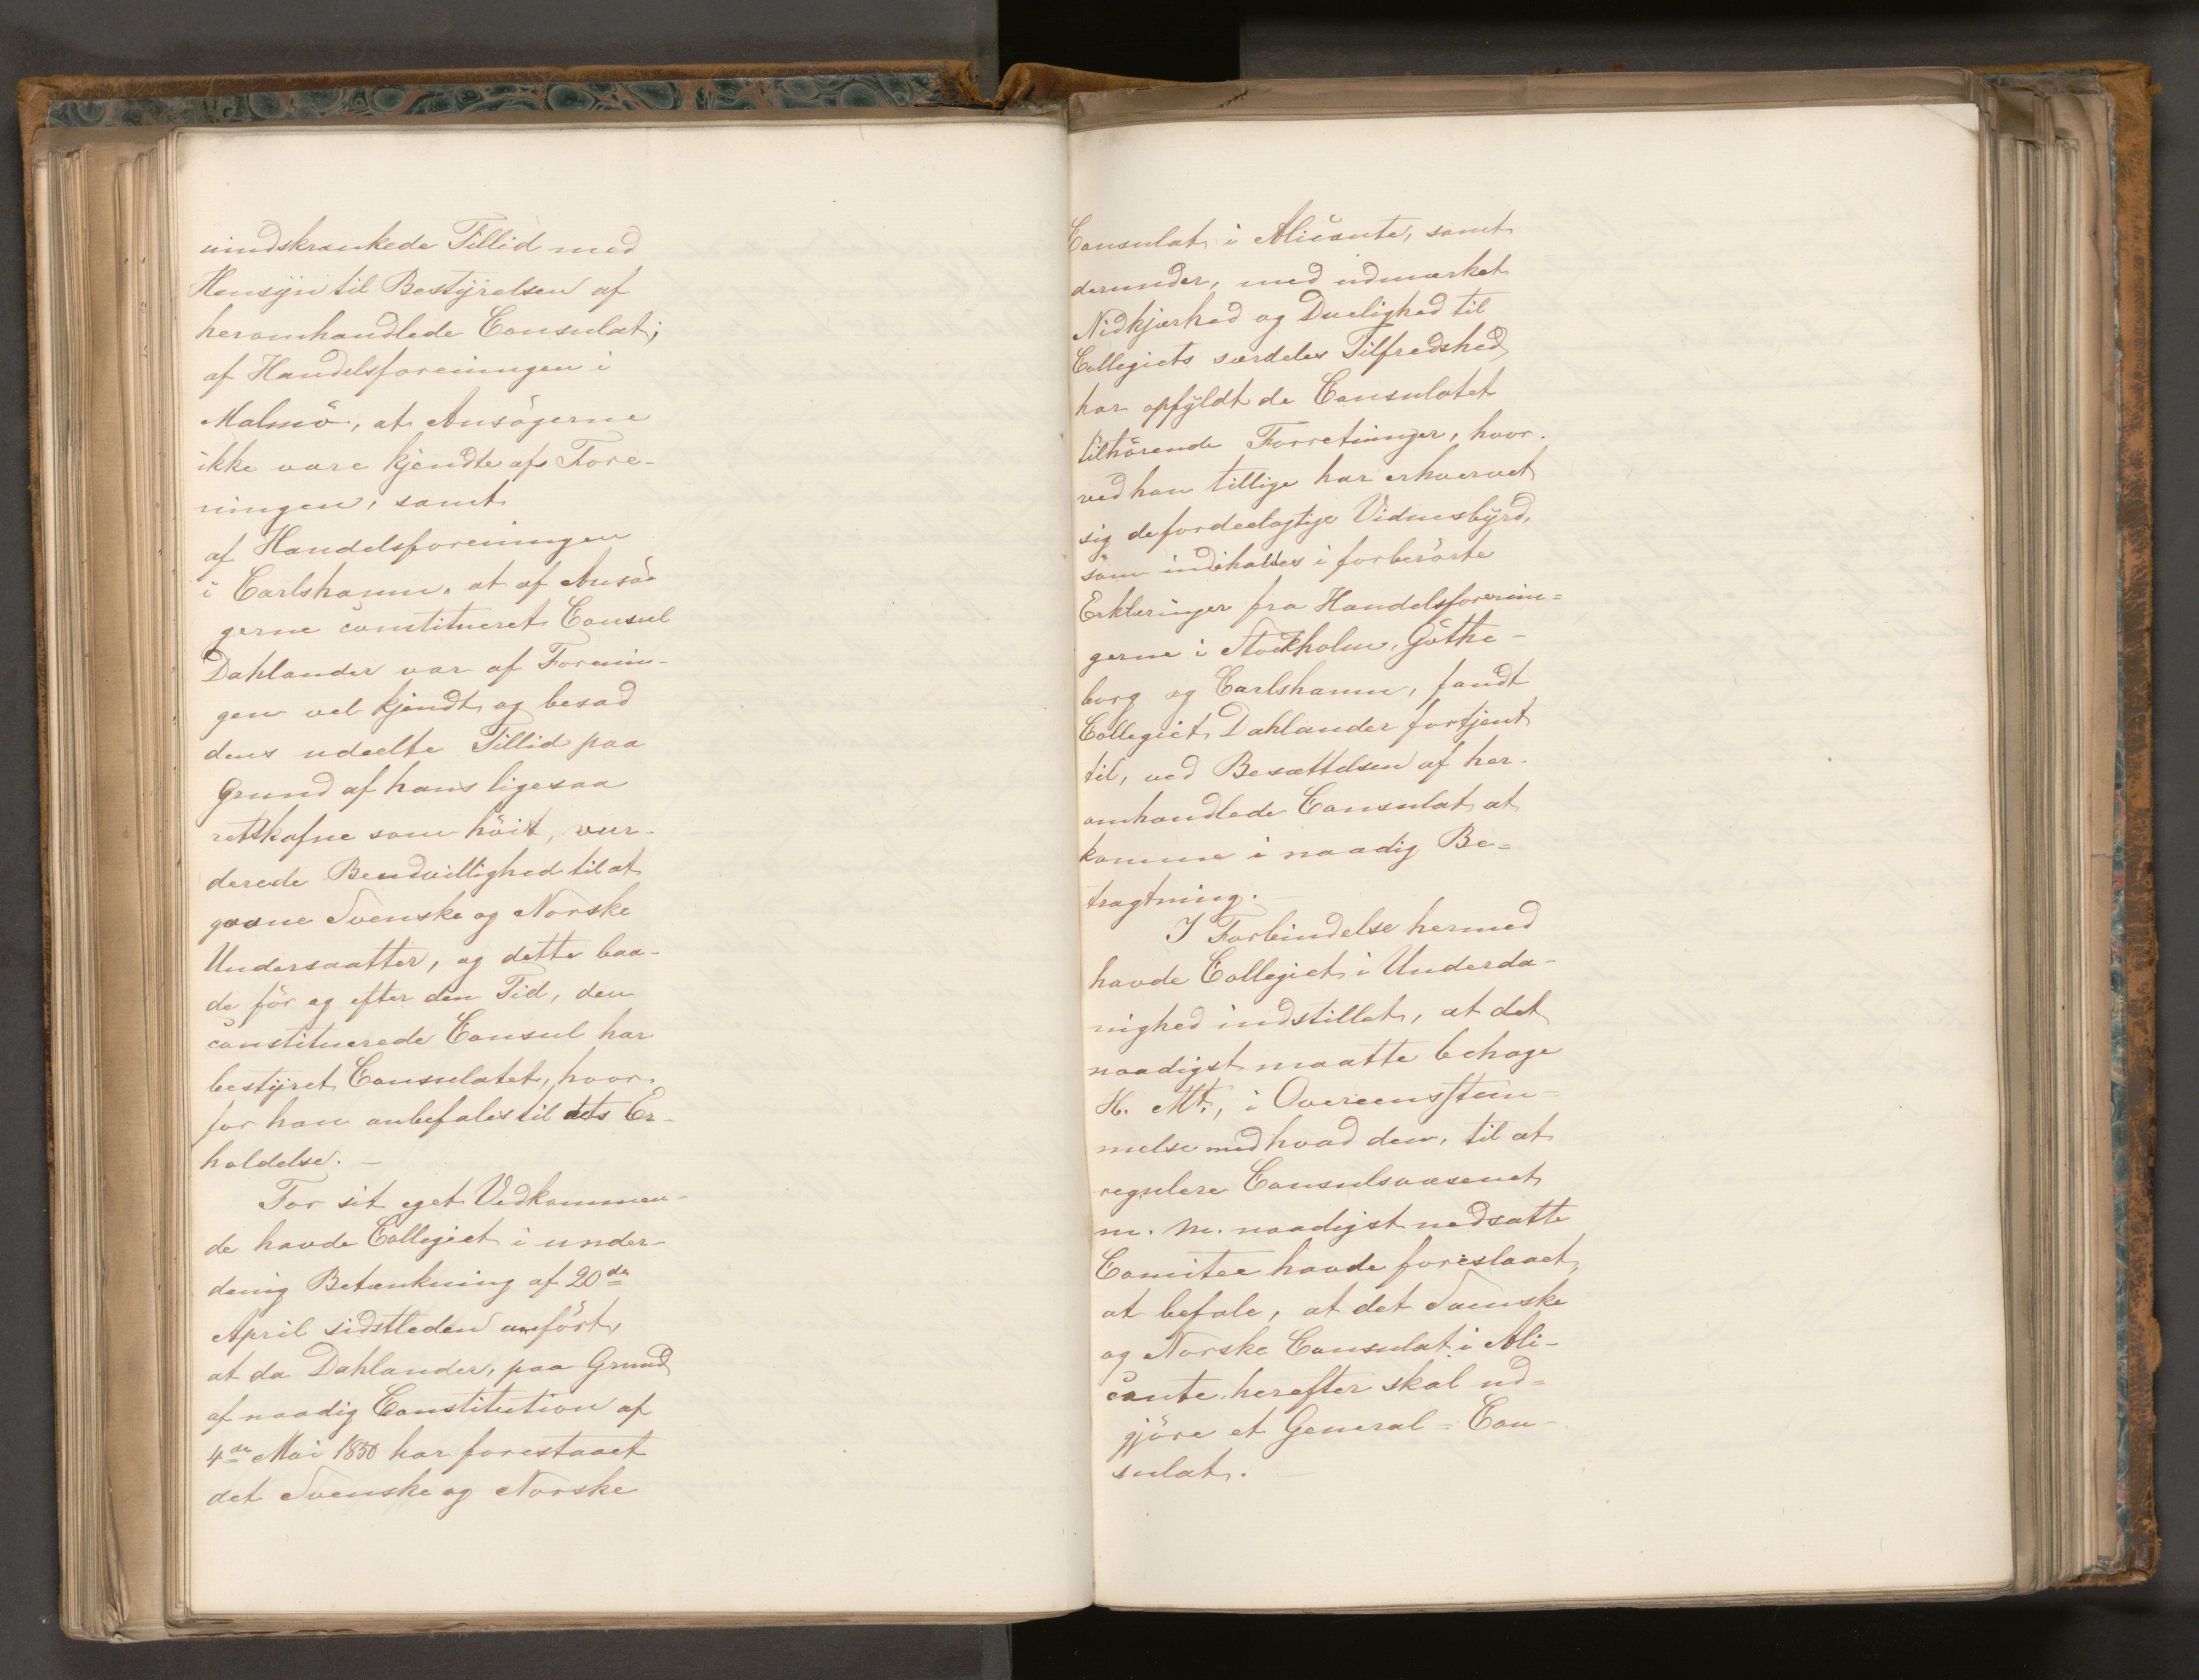 uindskrænkede Tillid med
Hensÿn til Bestÿrelsen af
heromhandlede Consulat;
af Handelsforeningen i
Malmö, at Ansögerne
ikke vare kjendte af Fore-
ningen; samt
af Handelsforeningen
i Carlshamn, at af Ansö-
gerne constitueret Consul
Dahlander var af Forenin-
gen vel kjendt og besad
dens udeelte Tillid paa
Grund af hans ligesaa
retskafne som höit vur-
derede Beredvillighed til at
gavne Svenske og Norske
Undersaatter, og dette baa-
de för og efter den Tid, den
constituerede Consul har
bestÿret Consulatet, hvor-
for han anbefales til dets Er-
holdelse. —
For sit eget Vedkommen-
de havde Collegiet i under-
danig Betænkning af 20de
April sidstleden anfört,
at da Dahlander, paa Grund
af naadig Constitution af
4de Mai 1850 har forestaaet
det Svenske og Norske
Consulat i Alicante, samt
derunder, med udmærket
Nidkjærhed og Duelighed til
Collegiets særdeles Tilfredshed
har opfÿldt de Consulatet
tilhörende Forretninger, hvor-
ved han tillige har erhvervet
sig de fordeelagtige Vidnesbÿrd,
som indeholdes i forberörte
Erklæringer fra Handelsforenin-
gerne i Stockholm, Göthe-
borg og Carlshamn, fandt
Collegiet Dahlander fortjent
til, ved Besættelsen af her-
omhandlede Consulat at
komme i naadig Be-
tragtning. —
I Forbindelse hermed
havde Collegiet i Underda-
nighed indstillet, at det
naadigst maatte behage
H. Mt., i Overeensstem-
melse med hvad den, til at
regulere Consulsvæsenet
m. m. naadigst nedsatte
Comitee havde foreslaaet,
at befale, at det Svenske
og Norske Consulat i Ali-
cante herefter skal ud-
gjöre et General-Con-
sulat. —